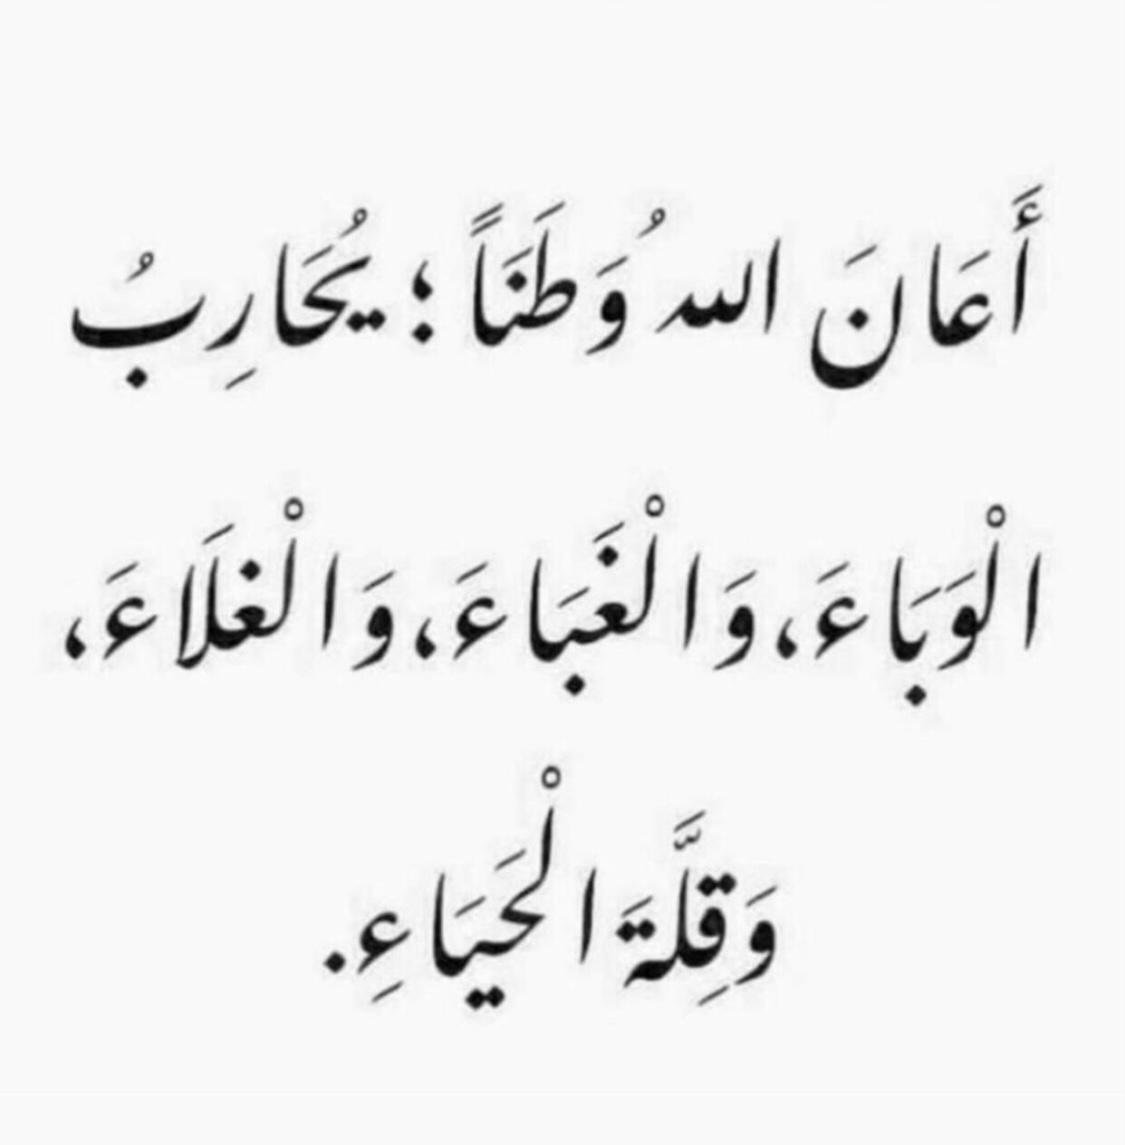 أَعَانَ اللهُ وَطَنَاً ؛ يُحَارِبُ
الْوَبَاءَ، وَالْغَبَاءَ، وَالْغلَاءَ،
وَقِلَّةَ الْحَيَاءِ.